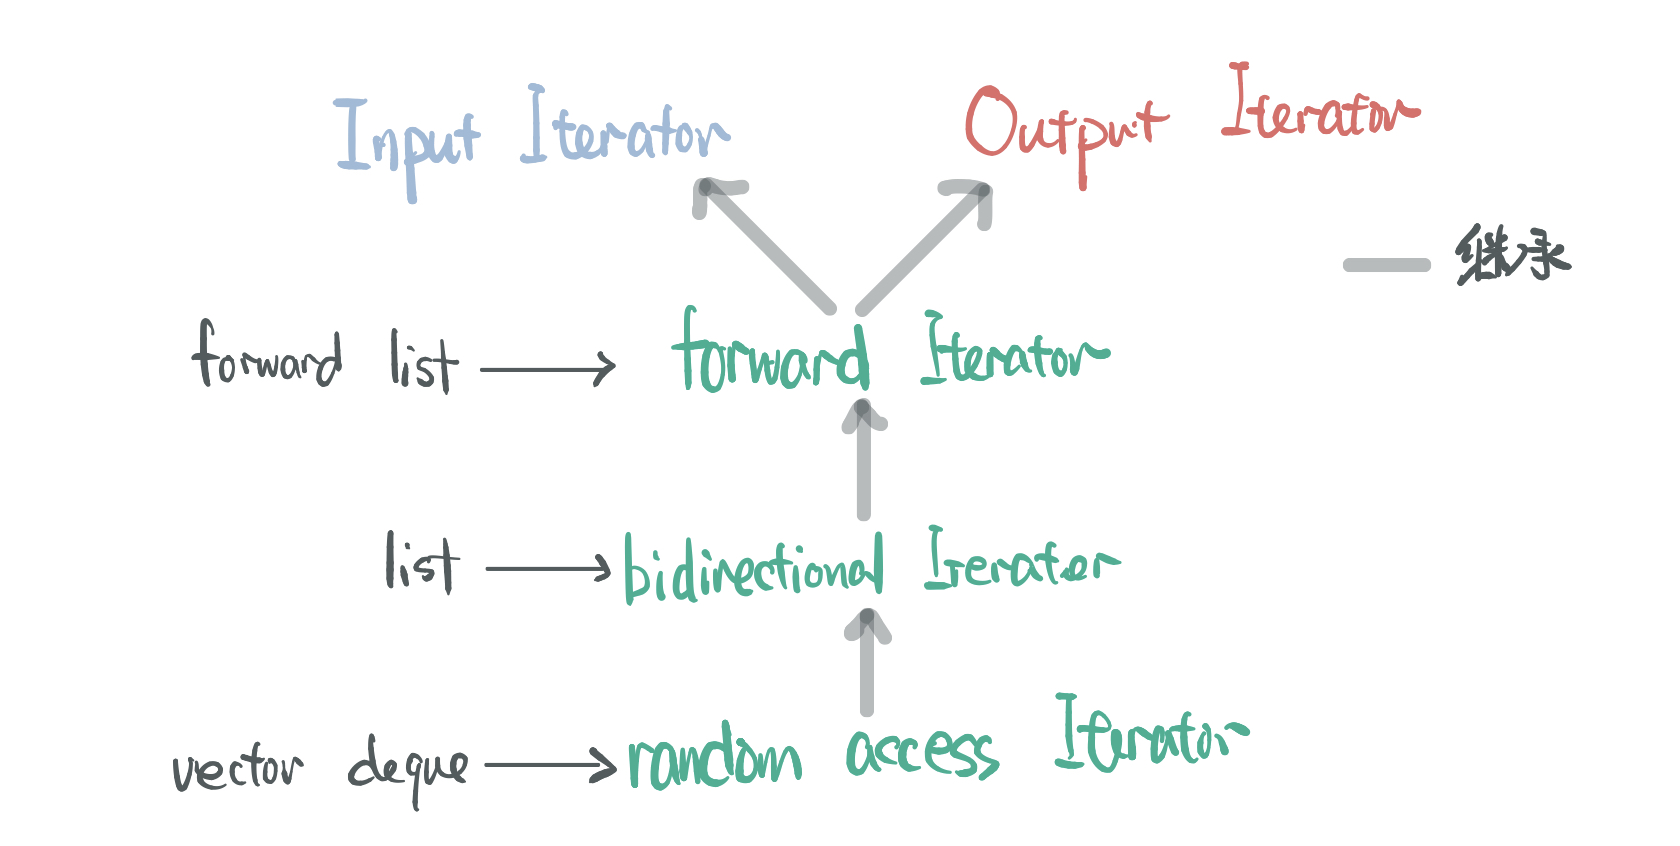 Input Iterator
Output Iterator
继承
forward list
forward Iterator
list
bidirectional Iterater
vector deque
random access Iterator